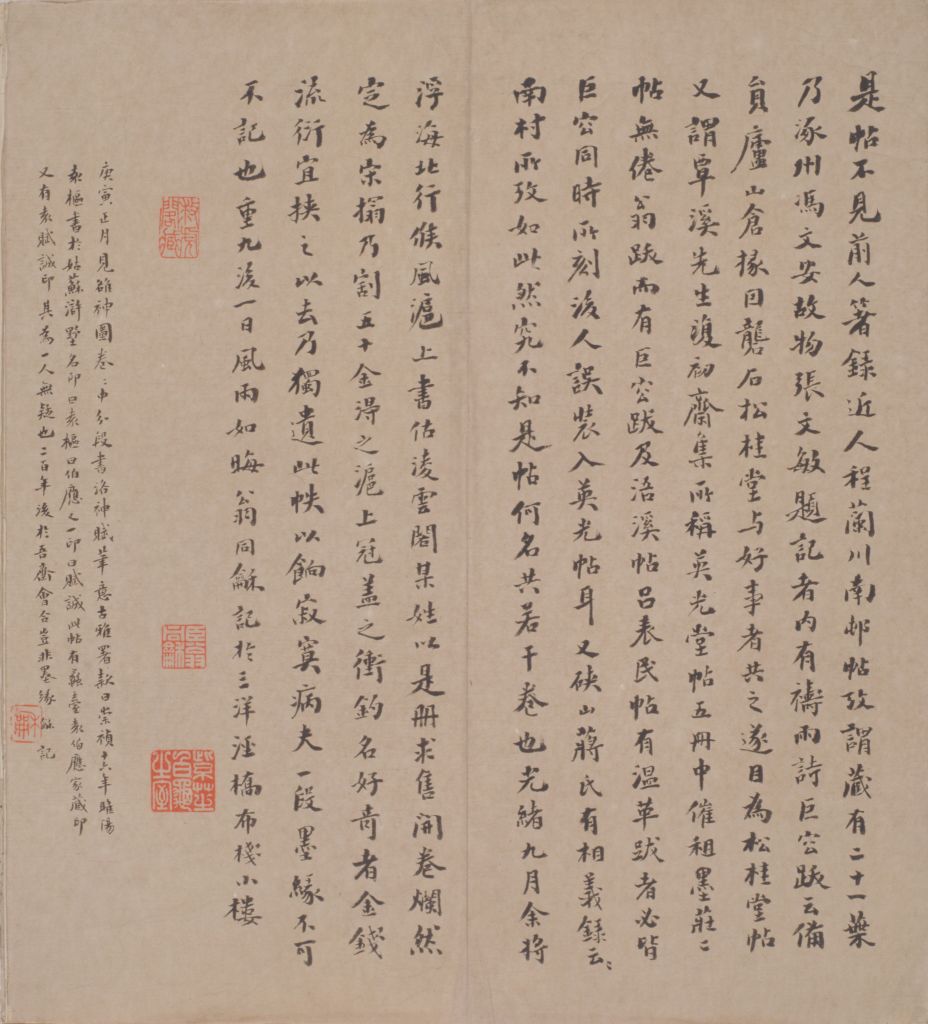 是帖不見前人箸錄近人程蘭川南邨帖攷謂藏有二十一葉
乃涿州馮文安故物張文敏題記者內有禱雨詩巨容跋云備
員廬山倉掾因礱石松桂堂与好事者共之遂目為松桂堂帖
又謂覃溪先生復初齋集所稱英光堂帖五冊中催租墨莊二
帖無倦翁跋而有巨容跋及浯溪帖呂表民帖有溫革跋者必皆
巨容同時所刻後人誤裝入英光帖耳又硤山蔣氏有相義錄云云
南村所攷如此然究不知是帖何名共若干卷也光緒九月余將
浮海北行候風滬上書估淩雲閣某姓以是冊求售開卷爛然
定為宋搨乃割五十金得之滬上冠蓋之衝釣名好奇者金錢
流衍宜挾之以去乃獨遺此帙以餉寂寞病夫一段墨緣不可
不記也重九後一日風雨如晦翁同龢記於三洋涇橋布棧小樓
庚寅正月見雒神圖卷卷中分段書洛神賦筆意古雅署款曰崇禎十六年睢陽
袁樞書於姑蘇滸墅名印曰袁樞曰伯應又一印曰賦誠此帖有蘇臺袁伯應家藏印
又有袁賦誠印其為一人無疑也二百年後於吾齋會合豈非墨緣 龢記